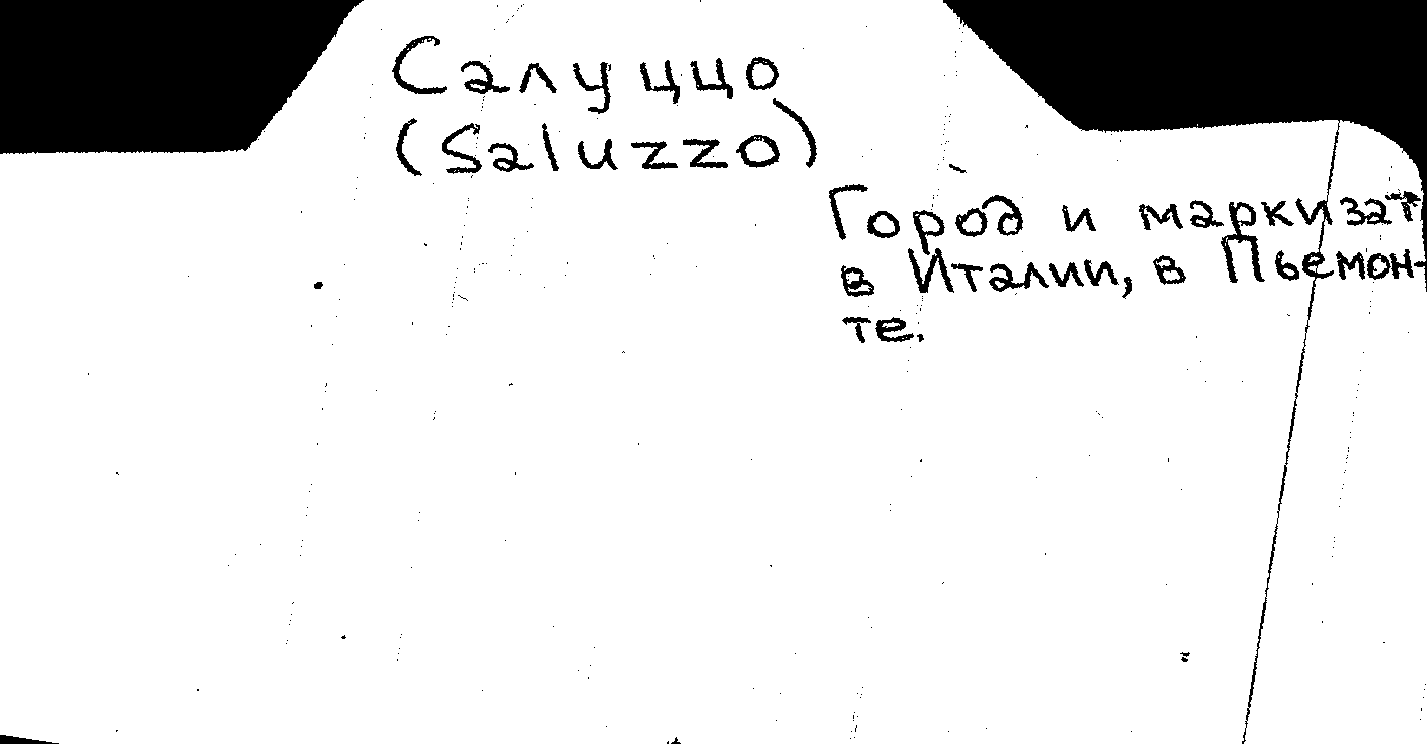 Салуццо
(Saluzzo)
Город и маркизат
в Италии, в Пьемон-
те.